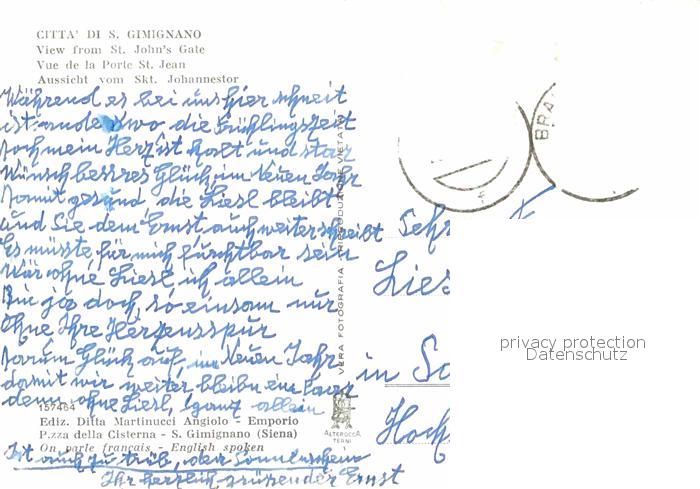 CITTA' DI S. GIMIGNANO
View from St. John's Gate
Vue de la Porte St. Jean
Aussicht vom Skt. Johannestor
Während es bei uns hier schneit
ist anderswo die Frühlingszeit
doch mein Herz ist kalt und starr
Wünsch bessres Glück im Neuen Jahr
Damit gesund die Liesl bleibt
und Sie dem Ernst auch weiter schreibt
Es müsste für mich furchtbar sein
Wär ohne Liesl ich allein
Bin ja doch so einsam nur
Ohne Ihre Herzensspur
Darum Glück auf, im Neuen Jahr
damit wir weiter bleibn ein Paar
denn ohne Liesl, ganz allein
157464
Ediz. Ditta Martinucci Angiolo - Emporio
P.zza della Cisterna - S. Gimignano (Siena)
On parle français - English spoken
Ist auch zu trüb, der Sonnenschein
Ihr herzlich grüssender Ernst
VERA FOTOGRAFIA - RIPRODUZIONE VIETATA
ALTEROCCA
TERNI
BRA
F
Sehr
Lies
in Sc
Hoch
privacy protection
Datenschutz